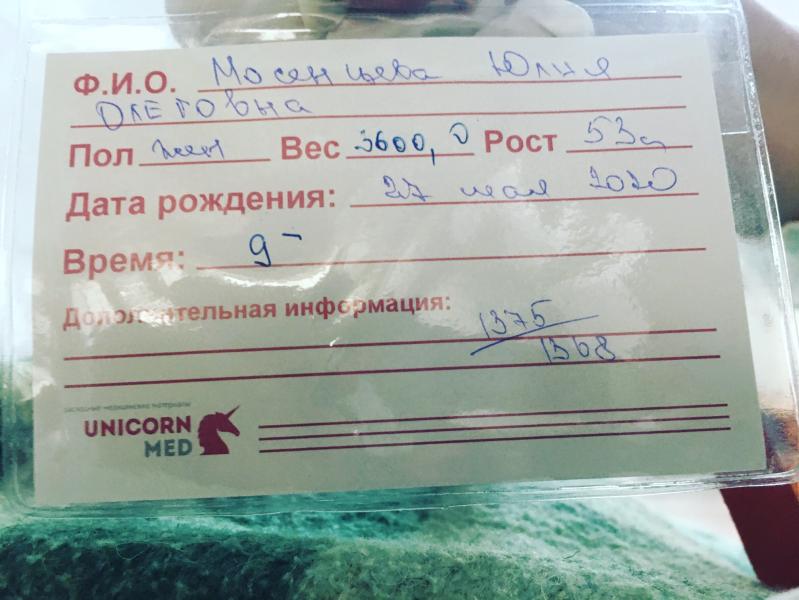 Ф.И.О. Мосенцева Юлия
Олеговна
Пол жен Вес 3600,0 Рост 53
Дата рождения: 27 мая 2020
Время: 9 –
Дополнительная информация:
1375
1368
расходные медицинские материалы
UNICORN
MED